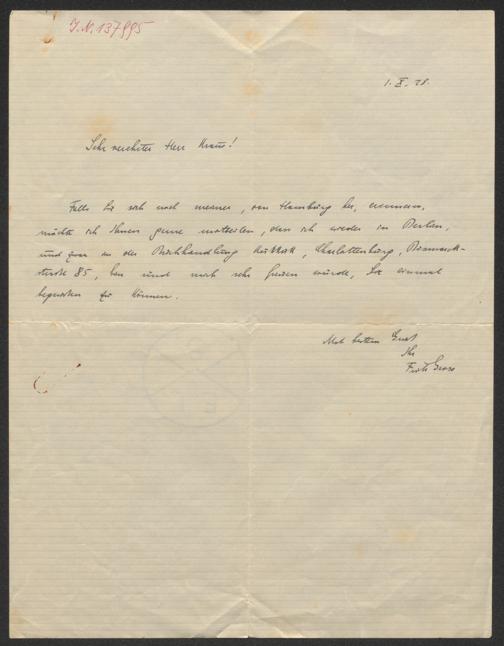 J. N. 137995
1. X. 28.
Sehr verehrter Herr Kraus!
Falls Sie sich noch meiner, von Hamburg her, erinnern,
möchte ich Ihnen gerne mitteilen, dass ich wieder in Berlin,
und zwar in der Buchhandlung Charlottenburg, Bismarck-
strasse 85, bin und mich sehr freuen würde, Sie einmal
begrüssen zu können.
Mit bestem Gruß
Ihr
Fritz Gross